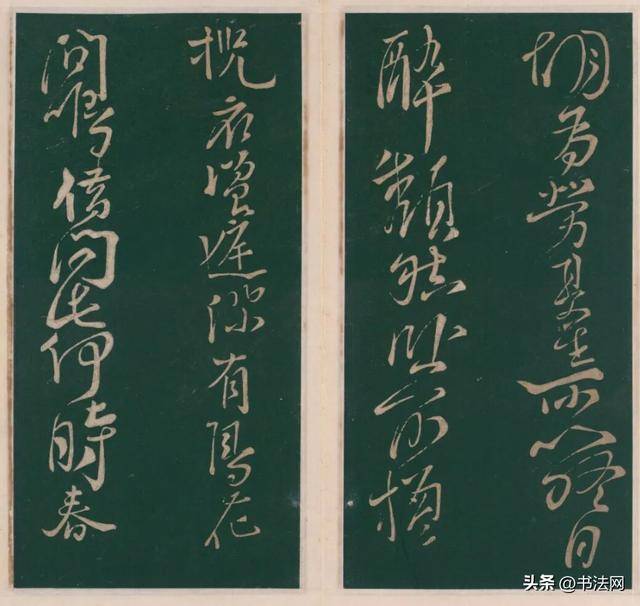 胡為勞其生所以終日
醉頹然卧前楹
攬衣庭有鳥花
間鳴借問此何時春
头条 @书法网